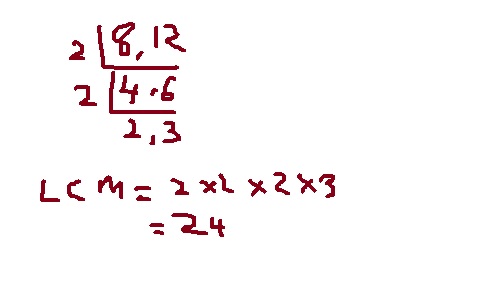 2 8, 12
2 4 . 6
2, 3
LCM = 2 × 2 × 2 × 3
= 24